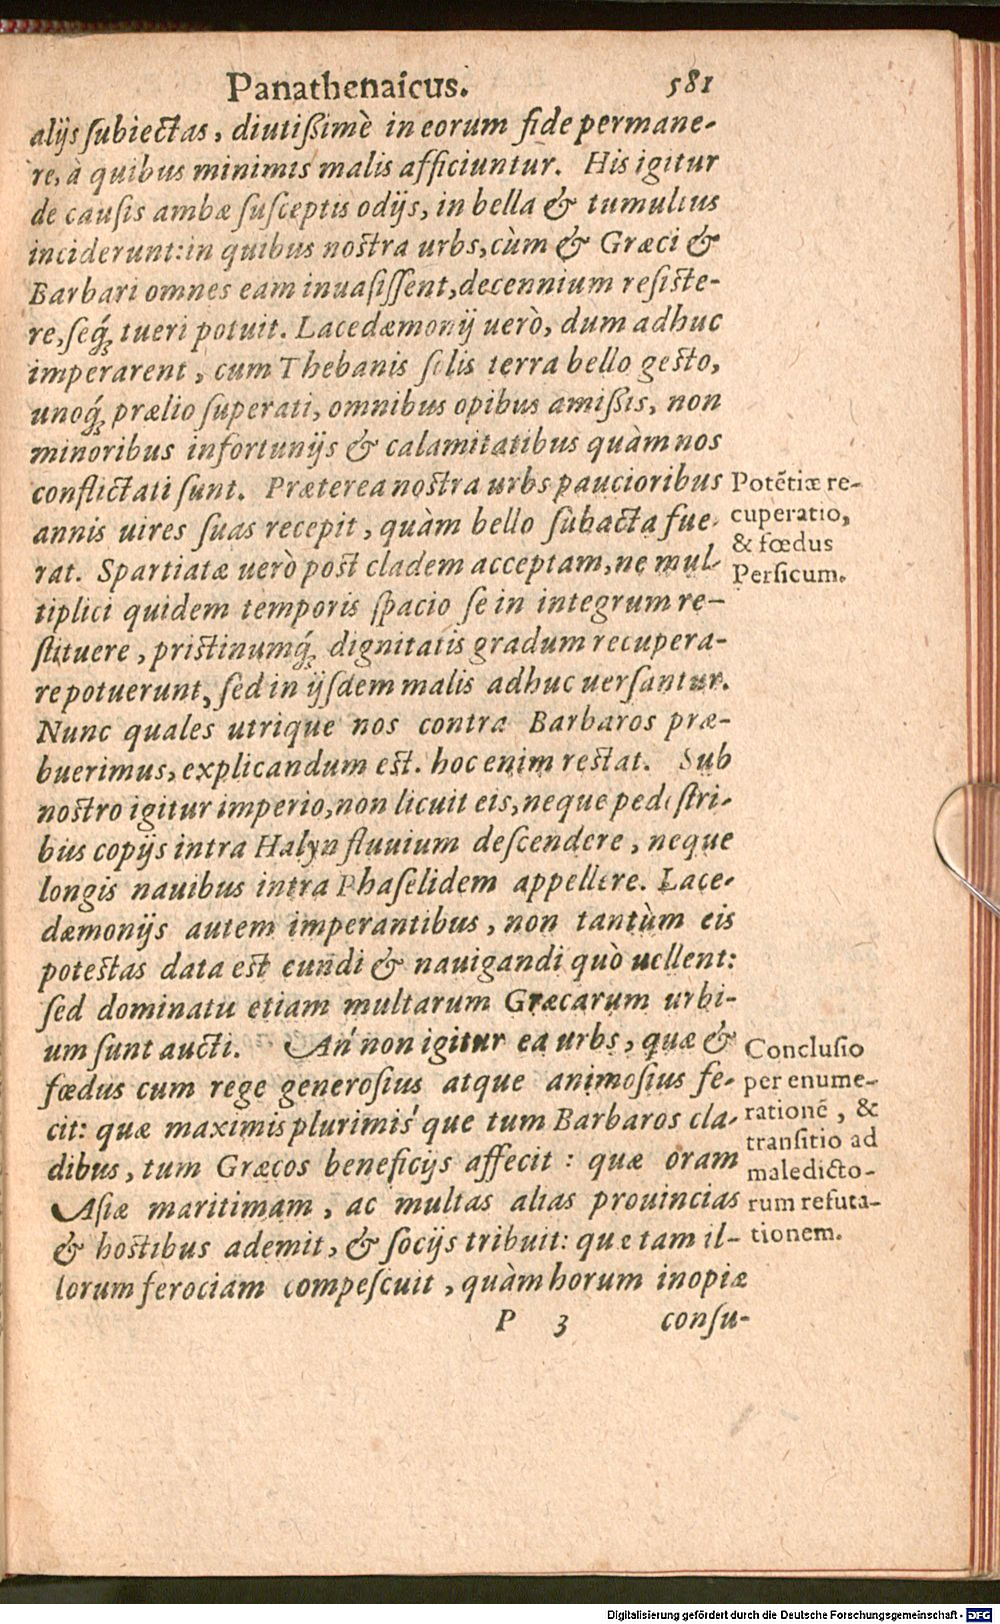 Panathenaicus. 581
alijs subiectas, diutißimè in eorum fide permane-
re, à quibus minimis malis afficiuntur. His igitur
de causis ambæ susceptis odijs, in bella & tumultus
inciderunt: in quibus nostra urbs, cùm & Græci &
Barbari omnes eam inuasissent, decennium resiste-
re, seq́ꝫ tueri potuit. Lacedæmonij uerò, dum adhuc
imperarent, cum Thebanis solis terra bello gesto,
unoq́ꝫ prælio superati, omnibus opibus amißis, non
minoribus infortunijs & calamitatibus quàm nos
conflictati sunt. Præterea nostra urbs paucioribus
annis uires suas recepit, quàm bello subacta fue-
rat. Spartiatæ uerò post cladem acceptam, ne mul-
tiplici quidem temporis spacio se in integrum re-
stituere, pristinumq́ꝫ dignitatis gradum recupera-
re potuerunt, sed in ijsdem malis adhuc uersantur.
Nunc quales utrique nos contra Barbaros præ-
buerimus, explicandum est. hoc enim restat. Sub
nostro igitur imperio, non licuit eis, neque pedestri-
bus copijs intra Halyn fluuium descendere, neque
longis nauibus intra Phaselidem appellere. Lace-
dæmonijs autem imperantibus, non tantùm eis
potestas data est eundi & nauigandi quò uellent:
sed dominatu etiam multarum Græcarum urbi-
um sunt aucti. An' non igitur ea urbs, quæ &
fœdus cum rege generosius atque animosius fe-
cit: quæ maximis plurimis'que tum Barbaros cla-
dibus, tum Græcos beneficijs affecit: quæ oram
Asiæ maritimam, ac multas alias prouincias
& hostibus ademit, & socijs tribuit: quæ tam il-
lorum ferociam compescuit, quàm horum inopiæ
P 3 consu-
Potẽtiæ re-
cuperatio,
& fœdus
Persicum.
Conclusio
per enume-
rationẽ, &
transitio ad
maledicto-
rum refuta-
tionem.
Digitalisierung gefördert durch die Deutsche Forschungsgemeinschaft - DFG